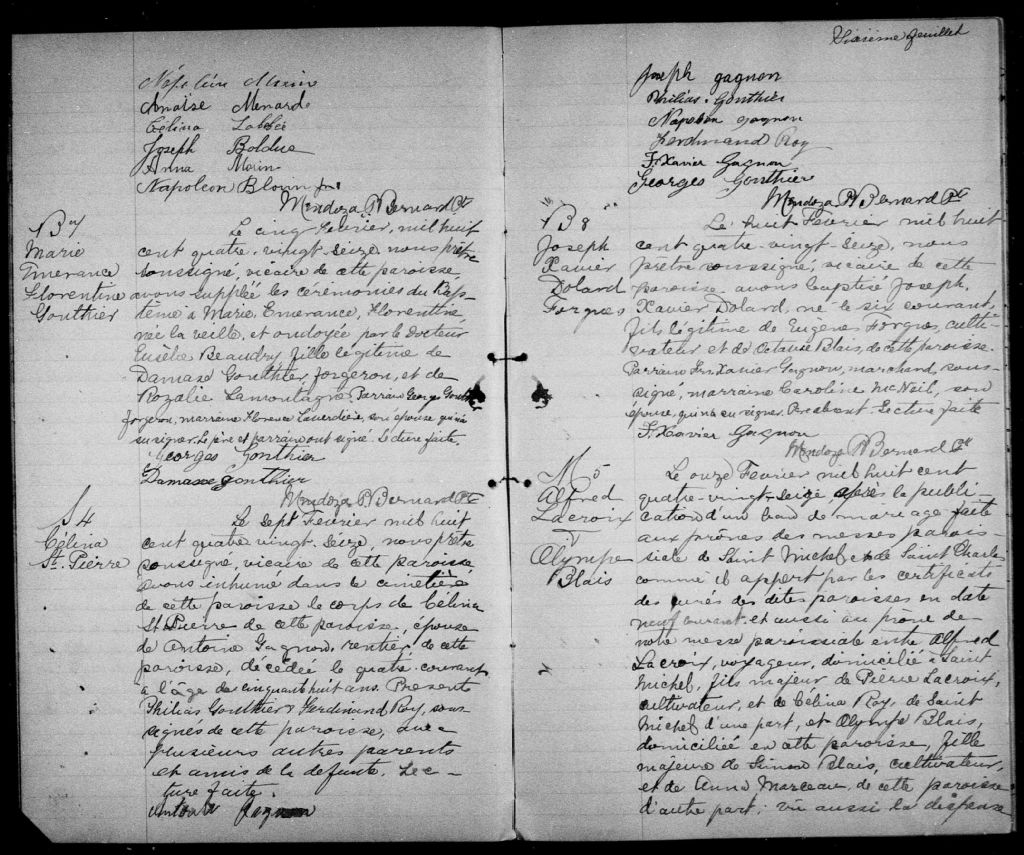 Napoléon Morin
Anaïse Menard
Célina Labbée
Joseph Bolduc
Anna Morin
Napoleon Blouin
Mendoza P. Bernard Ptr
B 7
Marie
Emerance
Florentine
Gonthier
Le cinq Février, mil huit
cent quatre-vingt-seize, nous prêtre
soussigné, vicaire de cette paroisse,
avons suppléé les cérémonies du Bap-
tême à Marie, Emerance, Florentine,
née la veille, et ondoyée par le Docteur
Eusèbe Beaudry, fille légitime de
Damase Gonthier, forgeron, et de
Rozalie Lamontagne. Parrain George Gonthier
forgeron, marraine Florence Laverdière, son épouse qui n'a
su signer. Le père et parrain ont signé. Lecture faite.
Georges Gonthier
Damasse Gonthier
Mendoza P. Bernard Ptr
S 4
Célina
St. Pierre
Le sept Février mil huit
cent quatre vingt-seize, nous prêtre
soussigné, vicaire de cette paroisse,
avons inhumé dans le cimetière
de cette paroisse le corps de Célina
St. Pierre de cette paroisse, épouse
de Antoine Gagnon, rentier, de cette
paroisse, décédée le quatre courant
à l'âge de cinquante huit ans. Présents
Philias Gonthier & Ferdinand Roy, sous-
signés de cette paroisse, avec
plusieurs autres parents
et amis de la défunte. Lec-
ture faite.
Gagnon
Sixième feuillet
Joseph gagnon
Philias Gonthier
Napoléon gagnon
Ferdinand Roy
F. Xavier Gagnon
Georges Gonthier
Mendoza P. Bernard Ptr
B 8
Joseph
Xavier
Dolard
Forgues
Le huit Février mil huit
cent quatre-vingt-seize, nous
prêtre soussigné, vicaire de cette
paroisse avons baptisé Joseph,
Xavier Dolard, né le six courant,
fils légitime de Eugène Forgues, culti-
vateur et de Octavie Blais, de cette paroisse.
Parrain Frs. Xavier Gagnon, marchand, sous-
signé, marraine Caroline McNeil, son
épouse, qui n'a su signer. Père absent. Lecture faite
F. Xavier Gagnon
Mendoza P. Bernard Ptr
M 5
Alfred
Lacroix
&
Olympe
Blais
Le onze Février mil huit cent
quatre-vingt-seize après la publi-
cation d'un ban de mariage faite
aux prônes des messes parois-
siale de Saint Michel & de Saint Charles
comme il appert par les certificats
des curés des dites paroisses en date
neuf courant, et aussi au prône de
notre messe paroissiale entre Alfred
Lacroix, voyageur, domicilié à Saint
Michel, fils majeur de Pierre Lacroix,
cultivateur, et de Célina Roy, de Saint
Michel d'une part, et Olympe Blais,
domiciliée en cette paroisse, fille
majeure de Simon Blais, cultivateur,
et de Anna Marceau, de cette paroisse
d'autre part; vu aussi la dispense